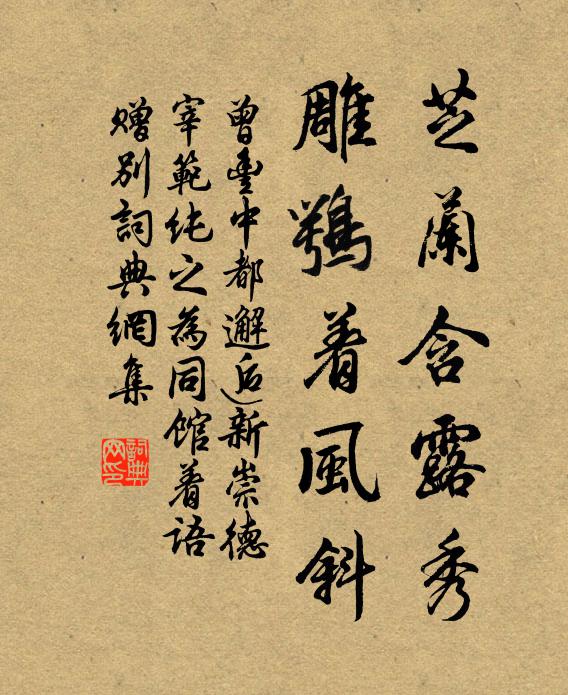 芝蘭含露秀
雕鶚着風斜
曾豐中都邂逅新崇德
宰範純之為同館着語
贈別詞典網集
詞典网印